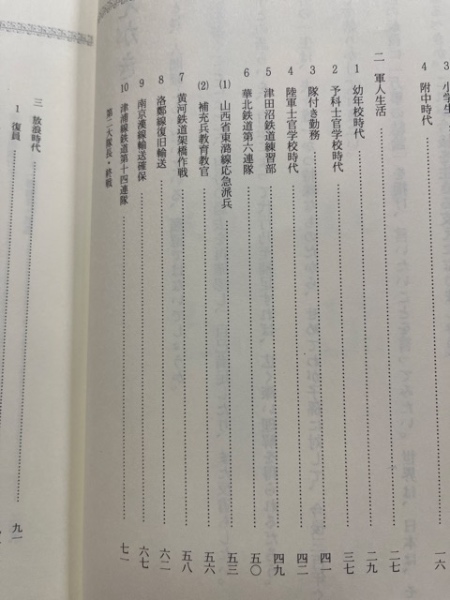 3 小学生
4 附中時代……一六
二 軍人生活……二七
1 幼年校時代……二九
2 予科士官学校時代……三七
3 隊付き勤務……四一
4 陸軍士官学校時代……四二
5 津田沼鉄道練習部……四九
6 華北鉄道第六連隊……五〇
(1) 山西省東潞線応急派兵……五三
(2) 補充兵教育教官……五六
7 黄河鉄道架橋作戦……五八
8 洛鄭線復旧輸送……六二
9 南京漢線輸送確保……六七
10 津浦線鉄道第十四連隊……七一
第二大隊長・終戦
三 放浪時代
1 復員……九一